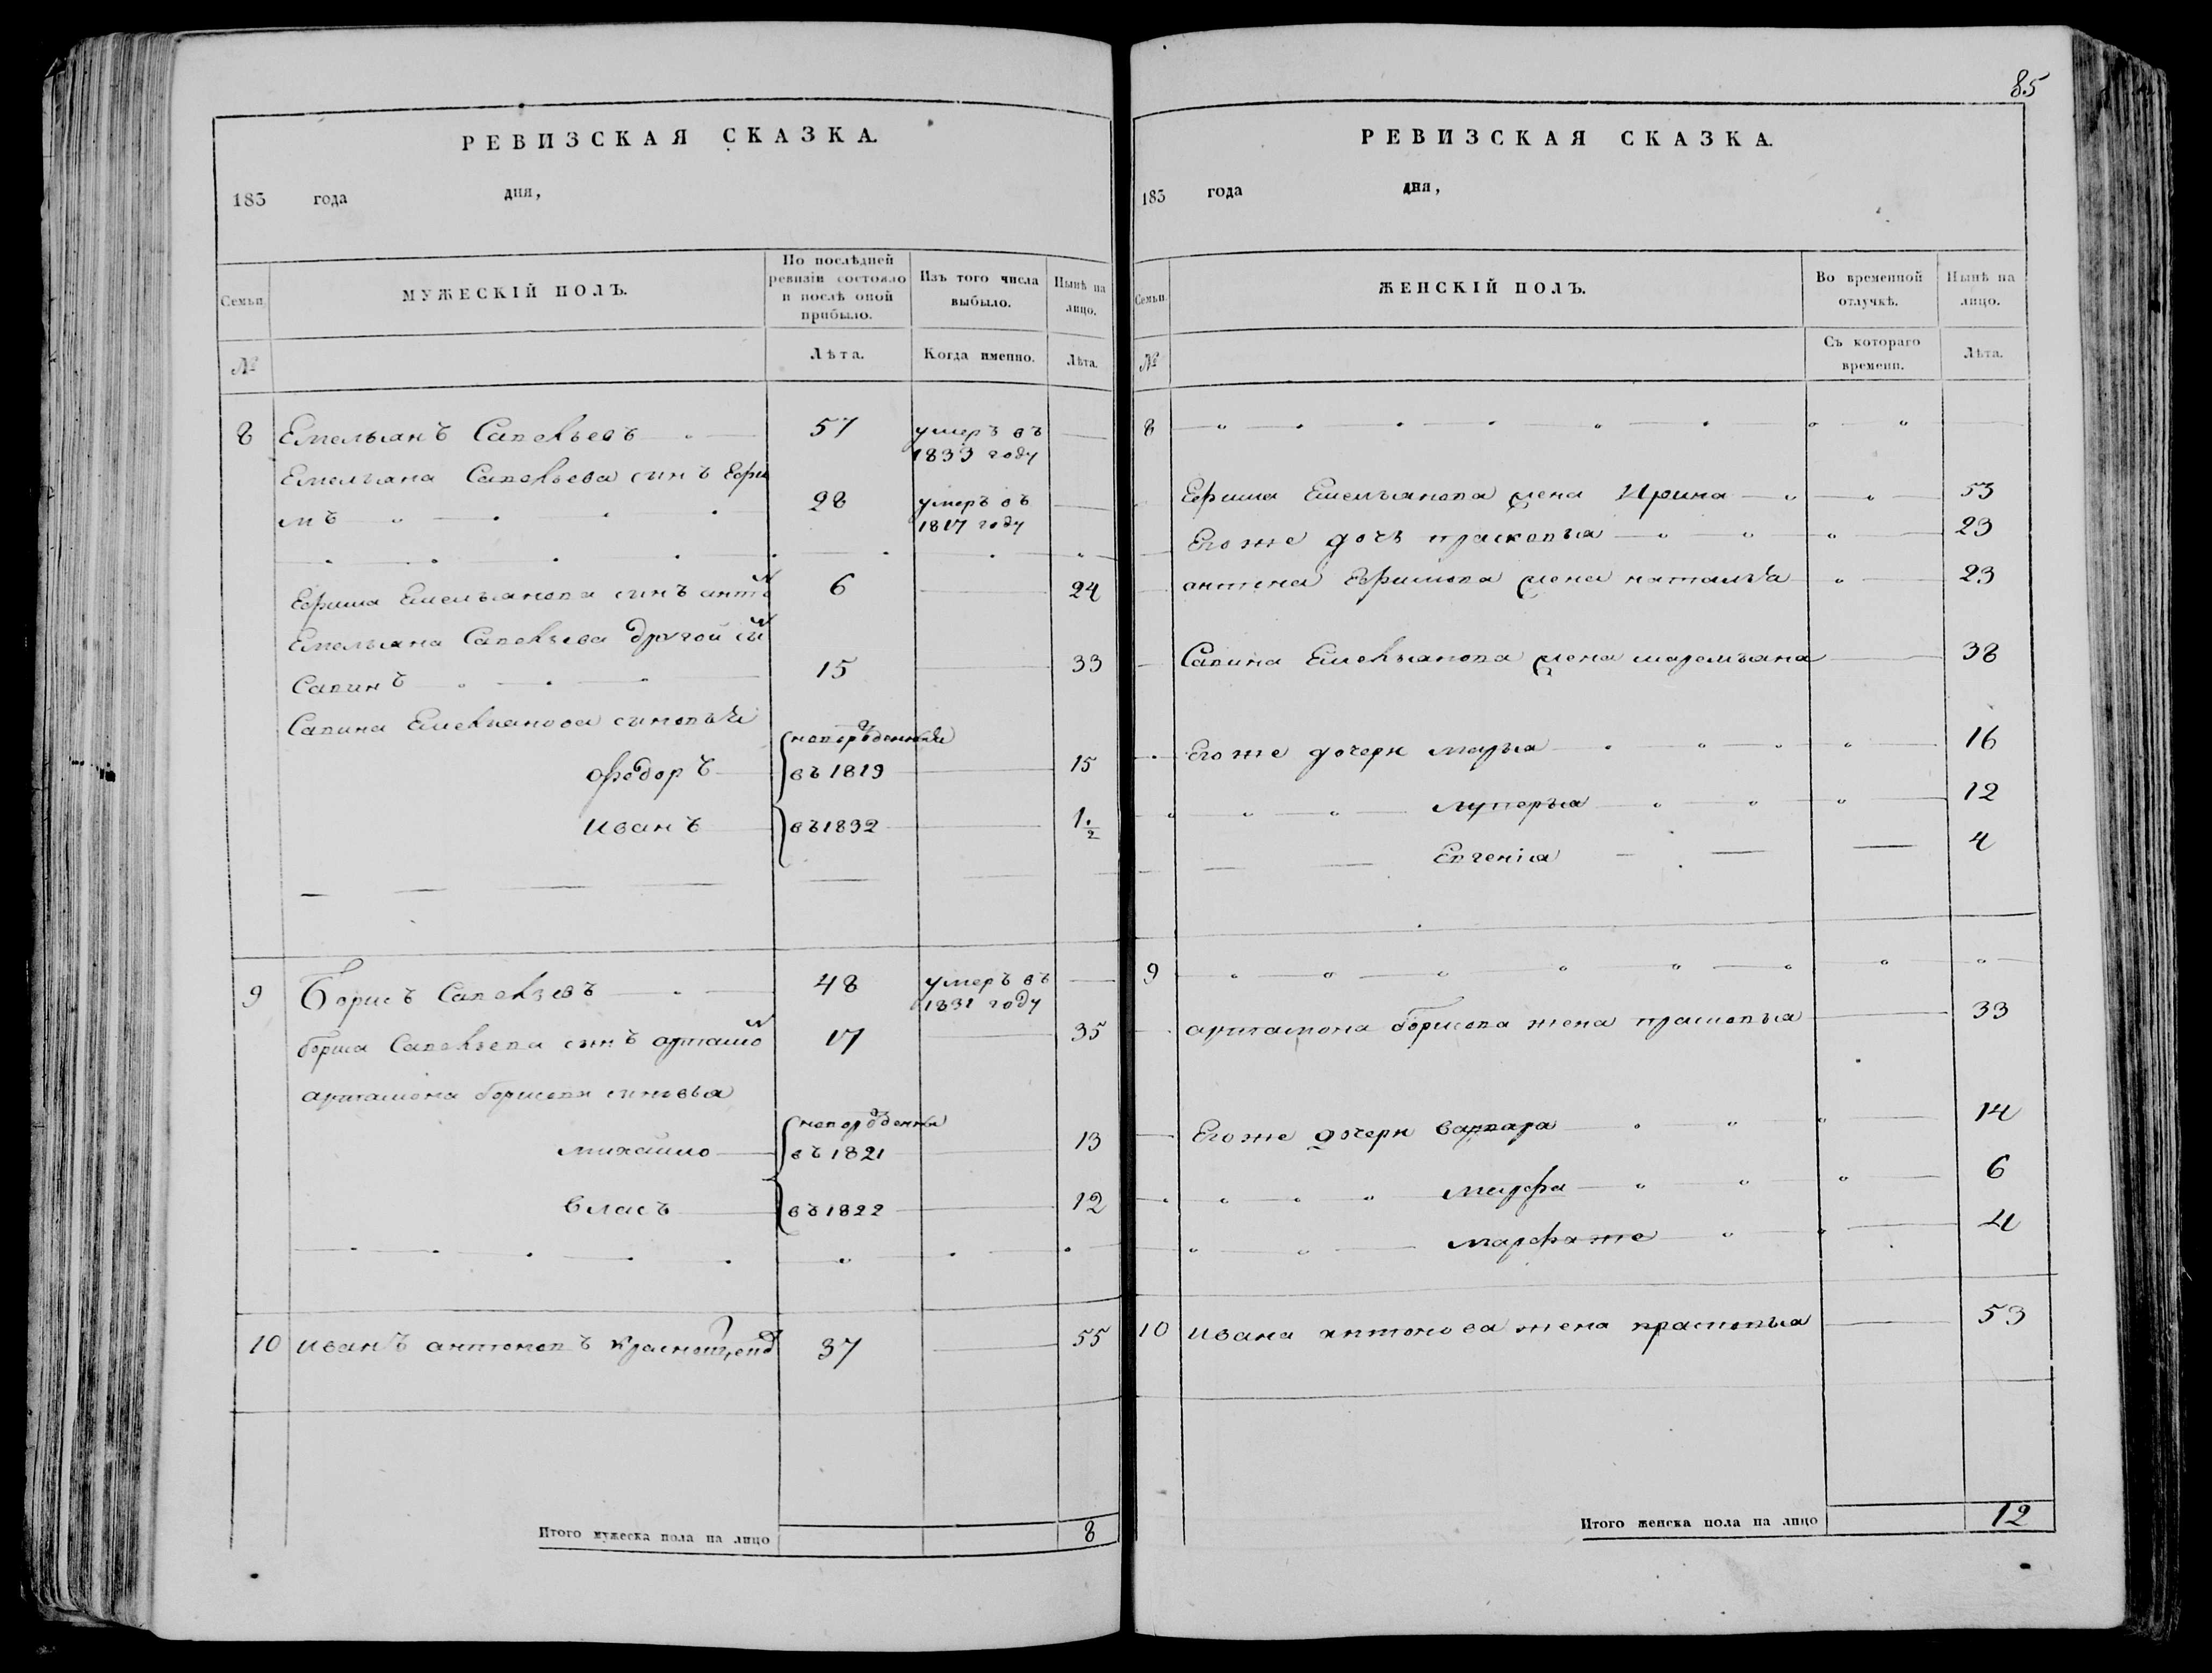 РЕВИЗСКАЯ СКАЗКА.
183 года дня,
Семьи. МУЖЕСКІЙ ПОЛЪ. По послѣдней ревизіи состояло и послѣ оной прибыло. Изъ того числа выбыло. Нынѣ на лицо.
№ Лѣта. Когда именно. Лѣта.
8 Емельянъ Савельевъ 57 умеръ въ
1833 году
Емельяна Савельева сынъ Ефи
мъ 28 умеръ въ
1817 году
Ефима Емельянова сынъ антo 6 24
Емельяна Савельева другой сы
Савинъ 15 33
Савина Емельянова сыновьи
новорожденныи
Ѳедоръ въ 1819 15
Иванъ въ 1832 1 1/2
9 Борисъ Савельевъ 48 умеръ въ
1831 году
бориса Савельева сынъ артамо 17 35
артамона борисова сыновья
новорожденны
михайло въ 1821 13
власъ въ 1822 12
10 иванъ антоновъ 37 55
Итого мужеска пола на лицо 8
85
РЕВИЗСКАЯ СКАЗКА.
183 года дня,
Семьи. ЖЕНСКІЙ ПОЛЪ. Во временной отлучкѣ. Нынѣ на лицо.
№ Съ котораго времени. Лѣта.
8
Ефима Емельянова жена Ирина 53
Его же дочь прасковья 23
антона Ефимова жена наталья 23
Савина Емельянова жена маремьяна 38
Его же дочери марья 16
лукерья 12
Евгенія 4
9
артамона борисова жена прасковья 33
Его же дочери варвара 14
марфа 6
марфа же 4
10 ивана антонова жена прасковья 53
Итого женска пола на лицо 12